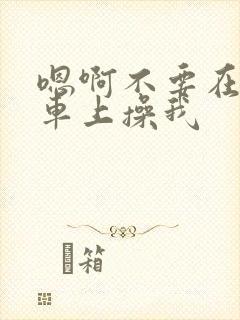 嗯啊不要在
车上操我
箱